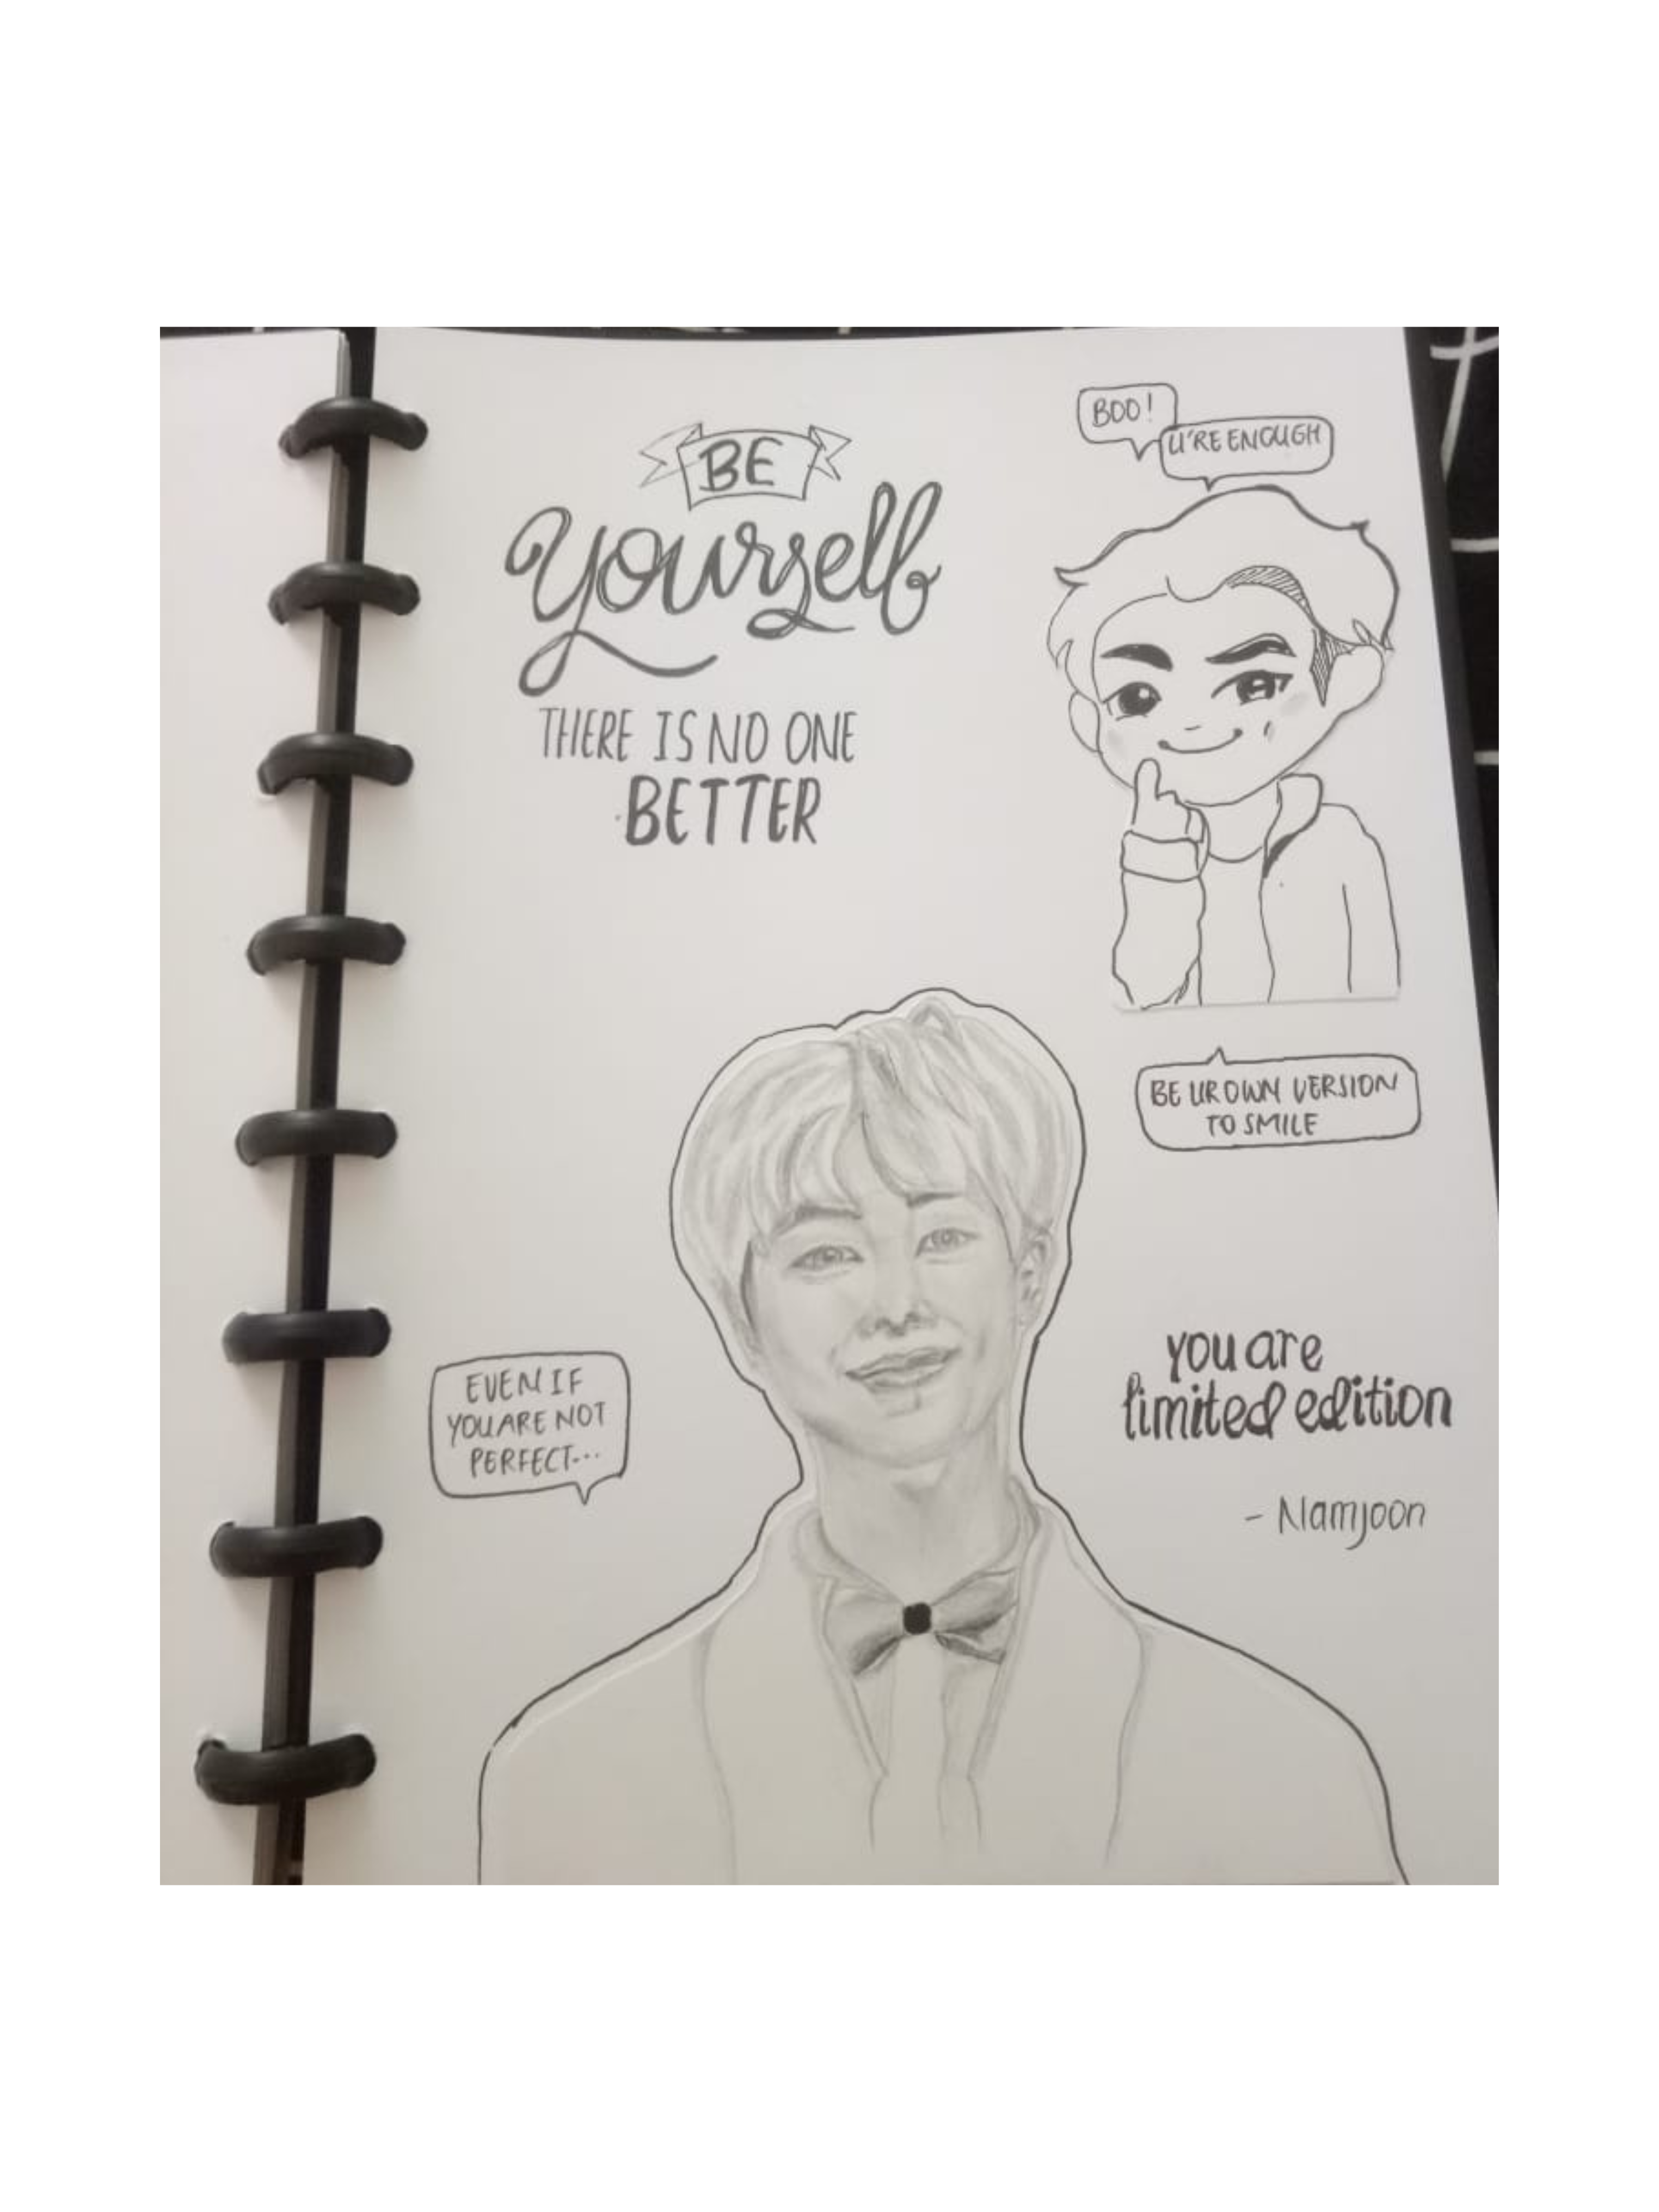 BE
yourself
THERE IS NO ONE
BETTER
BOO!
U'RE ENOUGH
BE UR OWN VERSION
TO SMILE
EVEN IF
YOU ARE NOT
PERFECT...
you are
limited edition
- Namjoon